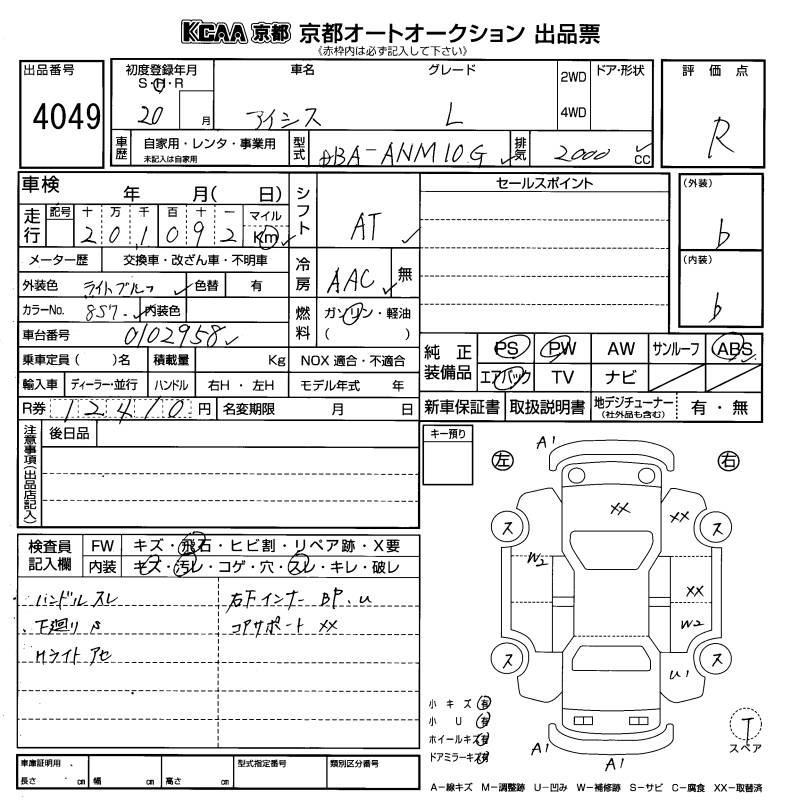 KCAA 京都 京都オートオークション 出品票
《赤枠内は必ず記入して下さい》
出品番号 初度登録年月 車名 グレード 2WD ドア・形状 評価点
S・H・R
4049 20 月 アイシス L 4WD R
車歴 自家用・レンタ・事業用 型式 DBA-ANM10G 排気 2000 CC
未記入は自家用
車検 年 月( 日) シフト AT セールスポイント (外装)
走行 記号 十 万 千 百 十 一 マイル
2 0 1 0 9 2 Km b
メーター歴 交換車・改ざん車・不明車 冷房 AAC 無 (内装)
外装色 ライトブルー 色替 有 b
カラーNo. 8S7 内装色 燃料 ガソリン・軽油
車台番号 0102958 ( )
乗車定員( )名 積載量 Kg NOX 適合・不適合 純正装備品 PS PW AW サンルーフ ABS
輸入車 ディーラー・並行 ハンドル 右H・左H モデル年式 年 エアバック TV ナビ
R券 12410 円 名変期限 月 日 新車保証書 取扱説明書 地デジチューナー 有・無
(社外品も含む)
注意事項(出品店記入) 後日品 キー預り
A1
左 右
XX XX
ス ス
検査員記入欄 FW キズ・飛石・ヒビ割・リペア跡・X要
内装 キズ・汚レ・コゲ・穴・スレ・キレ・破レ
W2
ハンドル スレ 右下インナー BP、U XX
下廻り S コアサポート XX W2
Hライト アセ
ス ス
U1
小キズ 有
小 U 有
ホイールキズ 有
ドアミラーキズ 有
T
スペア
A1 A1
A1
車庫証明用、 型式指定番号 類別区分番号
長さ cm 幅 cm 高さ cm
A−線キズ M−調整跡 U−凹み W−補修跡 S−サビ C−腐食 XX−取替済